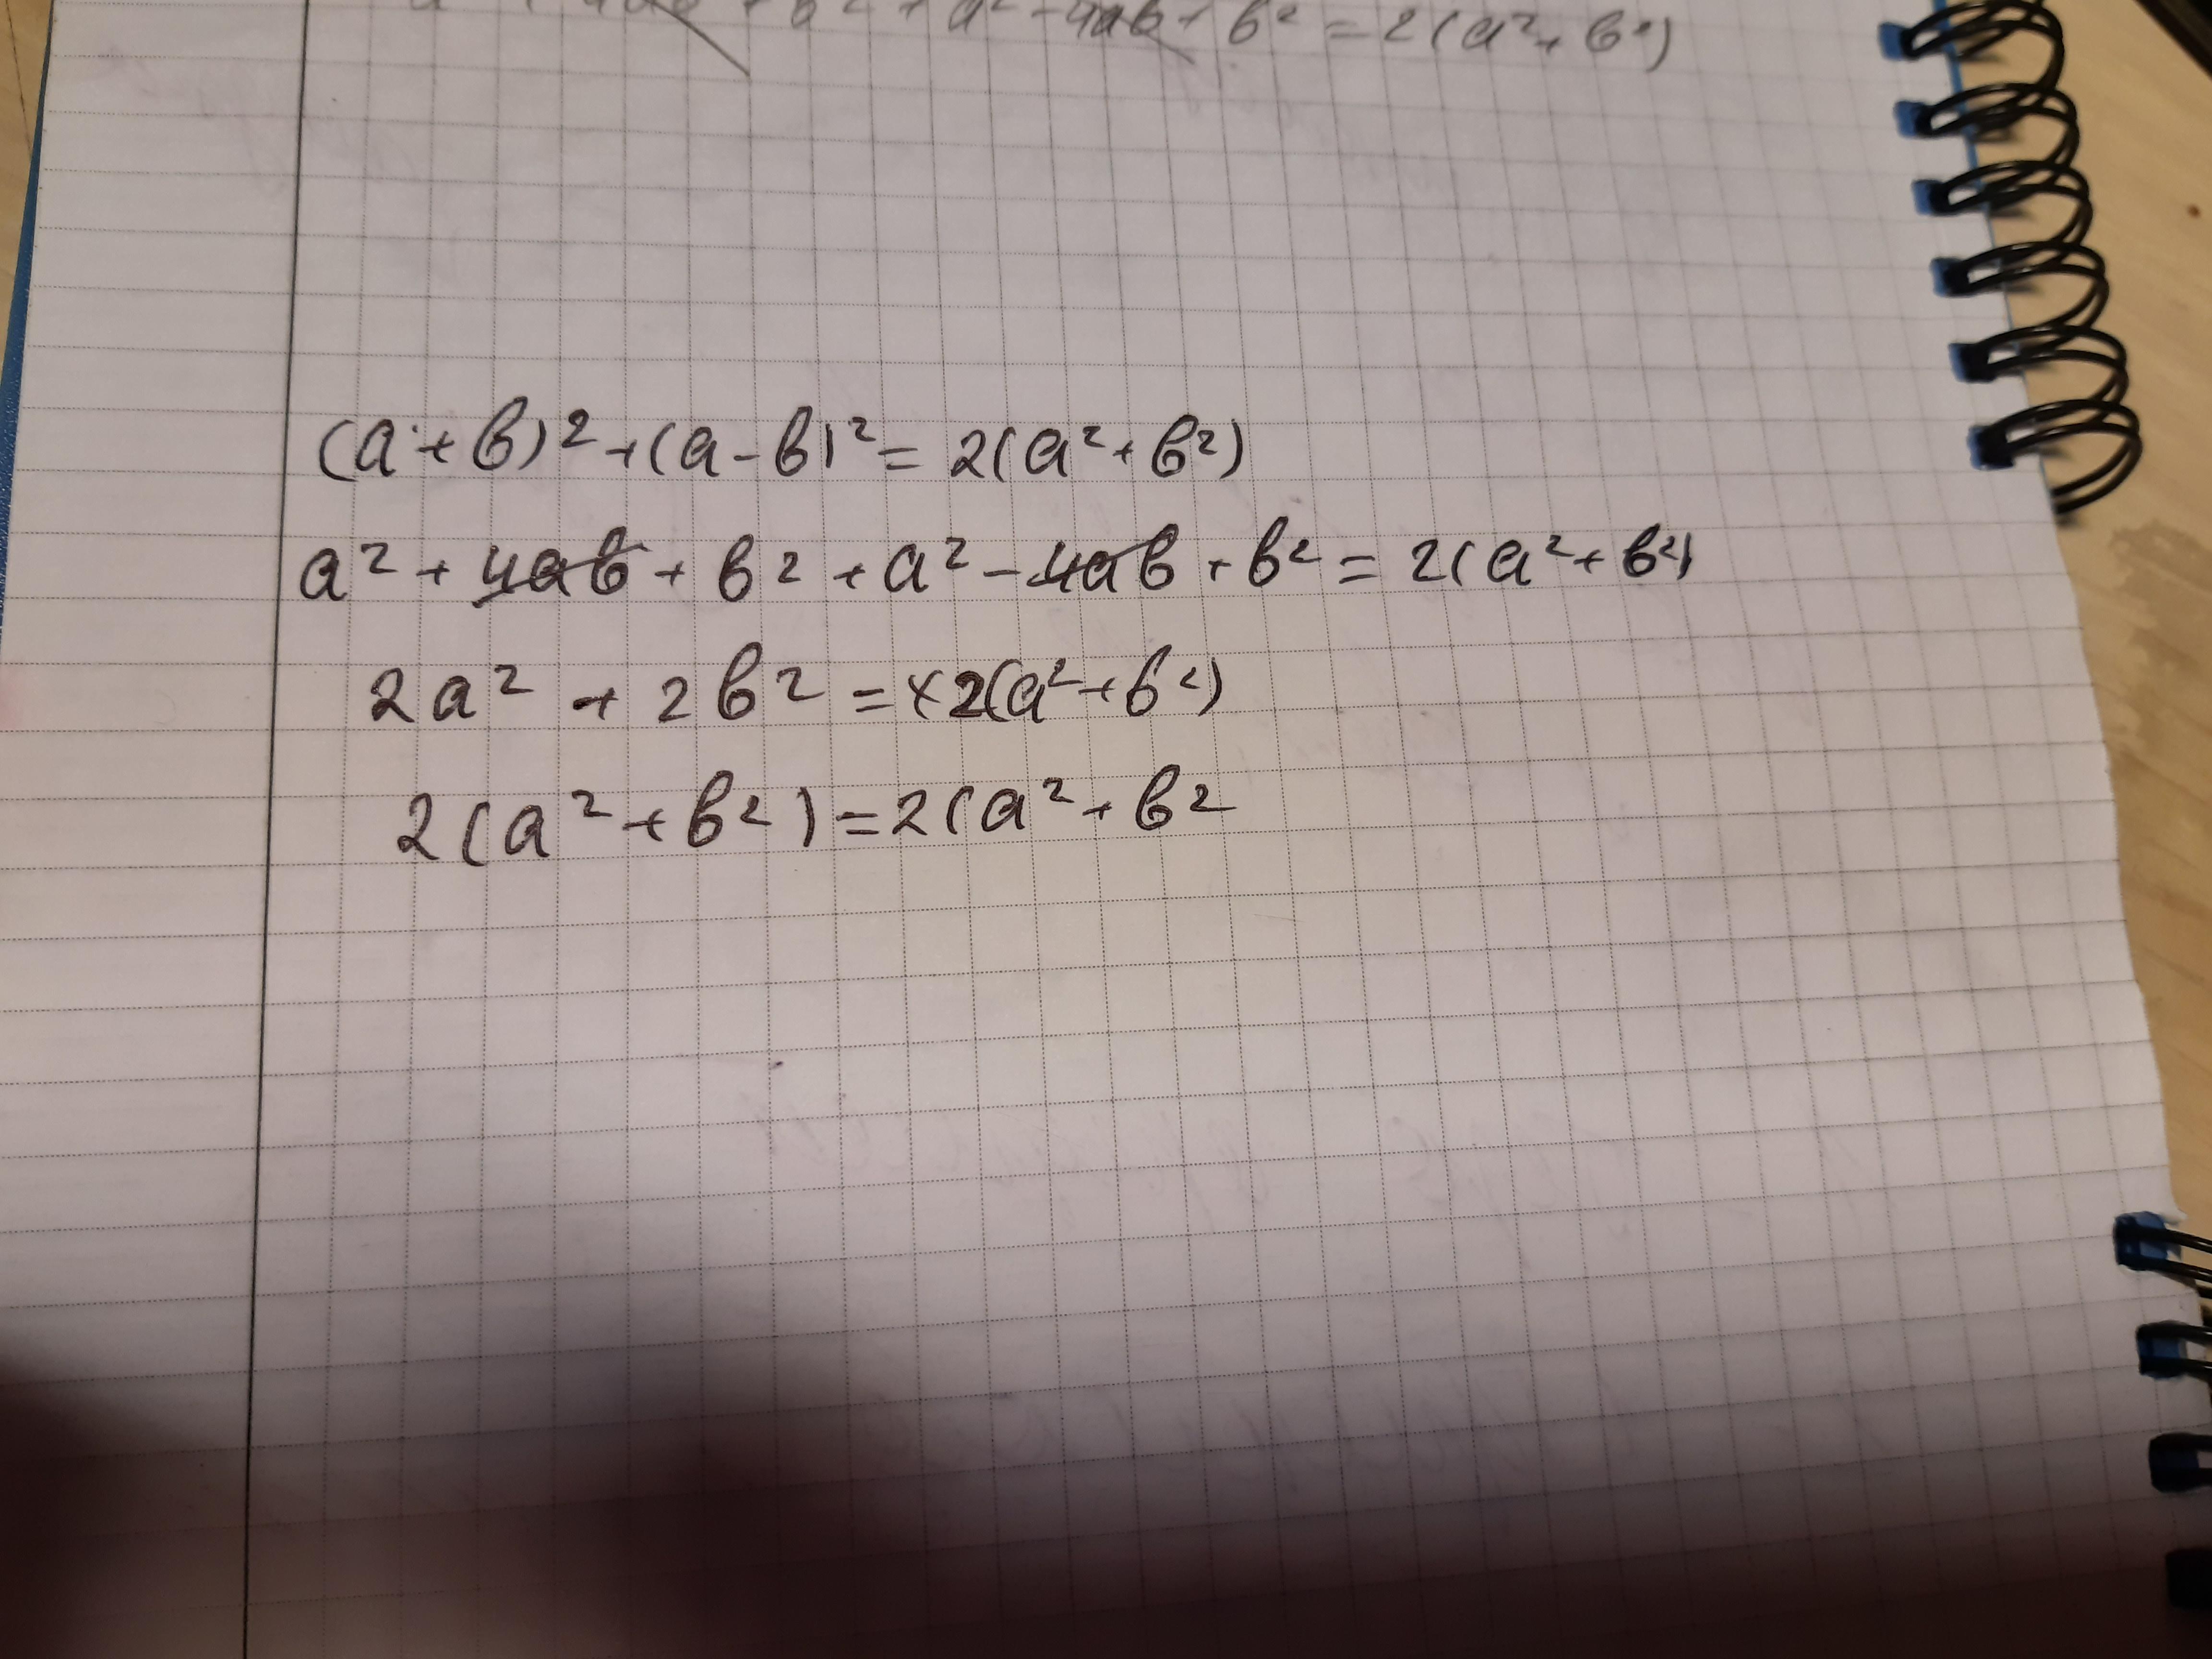 + b² + a² - 4ab + b² = 2(a² + b²)
(a + b)² + (a - b)² = 2(a² + b²)
a² + 4ab + b² + a² - 4ab + b² = 2(a² + b²)
2a² + 2b² = x2(a² + b²)
2(a² + b²) = 2(a² + b²